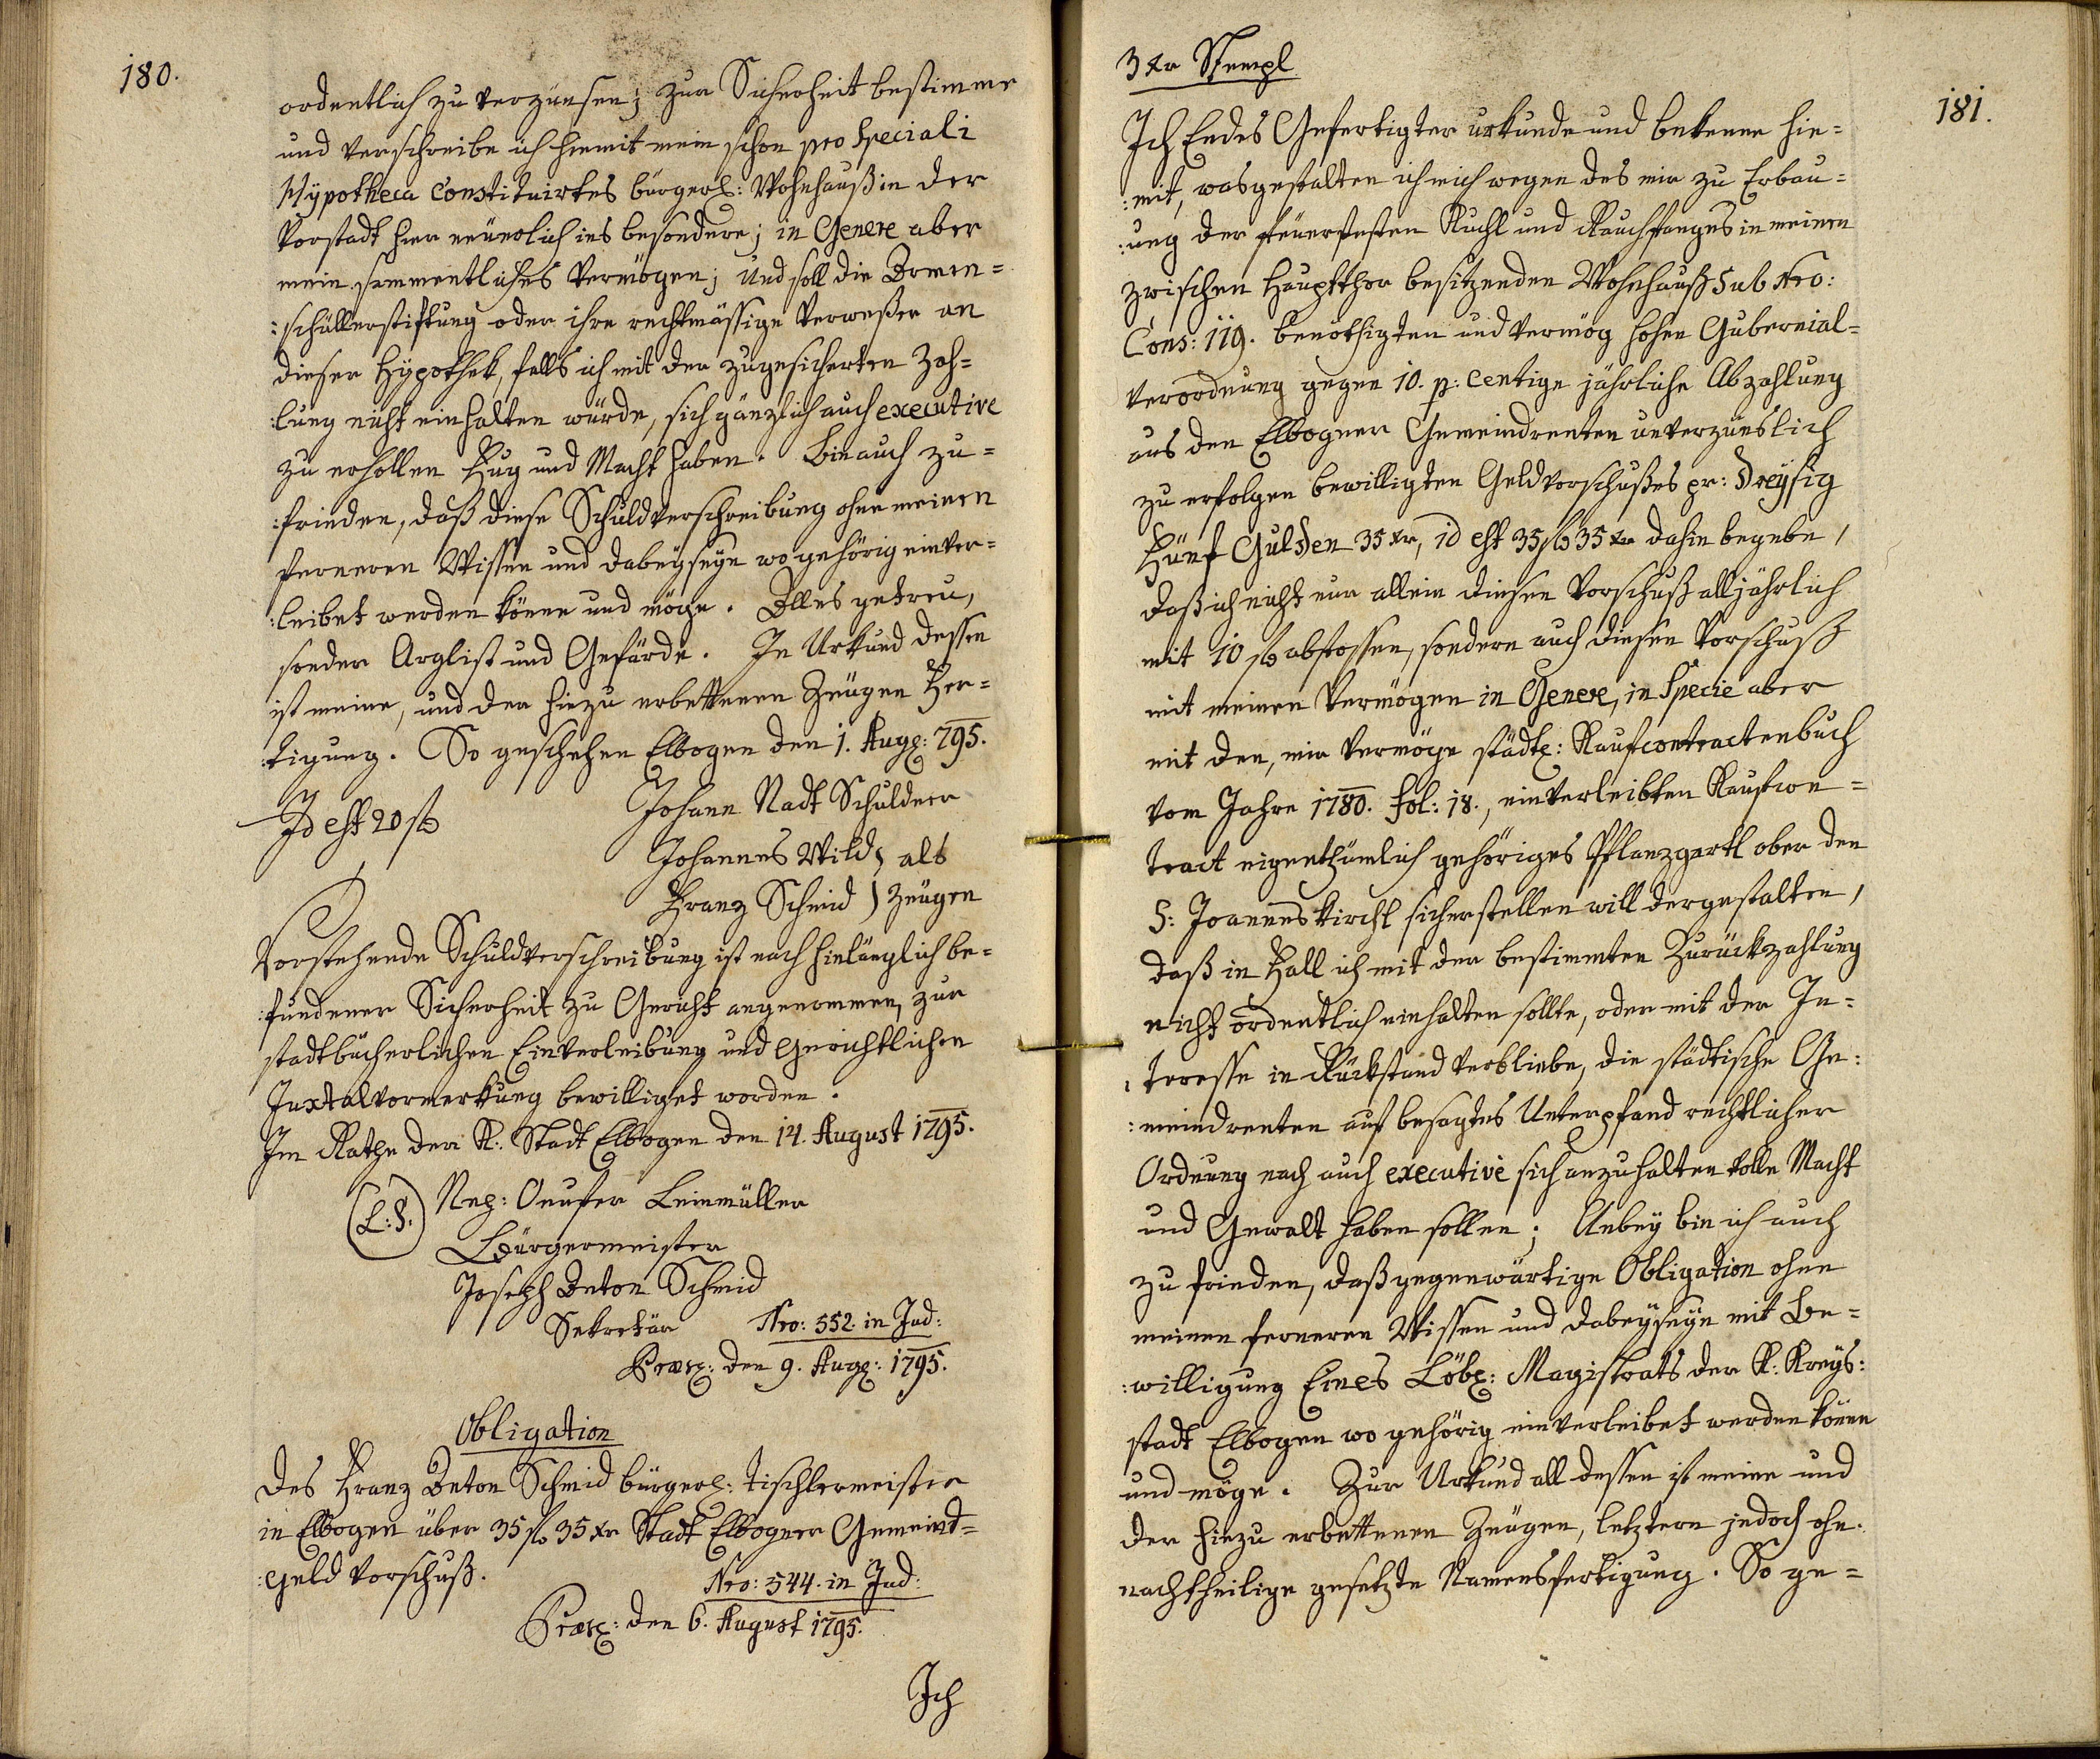 180.
ordentlich zu verzünsen; zur Sicherheit bestimme
und verschreibe ich hiemit mein schon pro speciali
Hypotheca Constituirtes bürgerl: Wohnhauß in der
Vorstadt hier neüerlich ins besondere; in Genere aber
mein sammentliches Vermögen; und soll die Armen=
:schüllerstiftung oder ihre rechtmässige Verweßer an
dieser Hypothek, falls ich mit der zugesicherten Zah=
:lung nicht einhalten würde, sich gänzlich auch executive
zu erhollen Fug und Macht haben. Bin auch zu=
:frieden, daß diese Schuldverschreibung ohne meinen
ferneren Wissen und dabeyseyn wo gehörig einver=
:leibet werden könne und möge. Alles getreu,
sonder Arglist und Gefärde. In Urkund dessen
ist meine, und der hiezu erbettenen Zeügen Fer=
:tigung. So geschehen Elbogen den 1. Aug: 795.
Id est 20 f
Johann Nadt Schuldner
Johannes Wild } als
Franz Schmid } Zeügen
Vorstehende Schuldverschreibung ist nach hinlänglich be=
:fundener Sicherheit zu Gericht angenommen, zur
stadtbücherlichen Einverleibung und gerichtlichen
Juxtalvormerkung bewilliget worden.
Im Rathe der K: Stadt Elbogen den 14. August 1795.
(L:S.) Onufer Leinmüller
Bürgermeister
Joseph Anton Schmid
Sekretär
Nro: 552. in Jud:
Præs: den 9. Aug: 1795.
Obligation
des Franz Anton Schmid bürgerl: Tischlermeister
in Elbogen über 35 f 35 xr Stadt Elbogner Gemeind=
:geld Vorschuß.
Nro: 544. in Jud:
Præs: den 6. August 1795.
Ich
181.
3 xr Stempl
Ich Endes Gefertigter urkunde und bekenne hie=
:mit, wasgestalten ich mich wegen des mir zu Erbau=
:ung der feüerfesten Kuchl und Rauchfanges in meinen
zwischen Hauptthor besitzenden Wohnhauß Sub Nro:
Cons: 119. benöthigten und vermög hohen Gubernial=
verordnung gegen 10. p: centige jährliche Abzahlung
aus den Elbogner Gemeindrenten unverzünslich
zu erfolgen bewilligten Geldvorschußes pr: Dreysig
Fünf Gulden 35 xr, id est 35 f 35 xr dahin begebe,
daß ich nicht nur allein diesen Vorschuß alljährlich
mit 10 f abstossen, sondern auch diesen Vorschuß
mit meinen Vermögen in Genere, in Specie aber
mit den, mir vermöge städt: Kaufcontractenbuch
vom Jahre 1780. fol: 18., einverleibten Kaufkon=
tract eigenthümlich gehöriges Pflanzgartl ober den
S: Joannes kirchl sicherstellen will dergestalten,
daß in Fall ich mit der bestimmten Zurückzahlung
nicht ordentlich einhalten sollte, oder mit der In=
:teresse in Rückstand verbliebe, die städtische Ge:
:meindrenten auf besagtes Unterpfand rechtlicher
Ordnung nach auch executive sich anzuhalten volle Macht
und Gewalt haben sollen; Anbey bin ich auch
zu frieden, daß gegenwärtige Obligation ohne
meinen ferneren Wissen und dabeyseyn mit Be=
:willigung Eines Löbl: Magistrats der K: Kreys:
stadt Elbogen wo gehörig einverleibet werden könne
und möge. Zur Urkund all dessen ist meine und
der hiezu erbettenen Zeügen, letztern jedoch ohn-
nachtheilige gesetzte Namensfertigung. So ge=